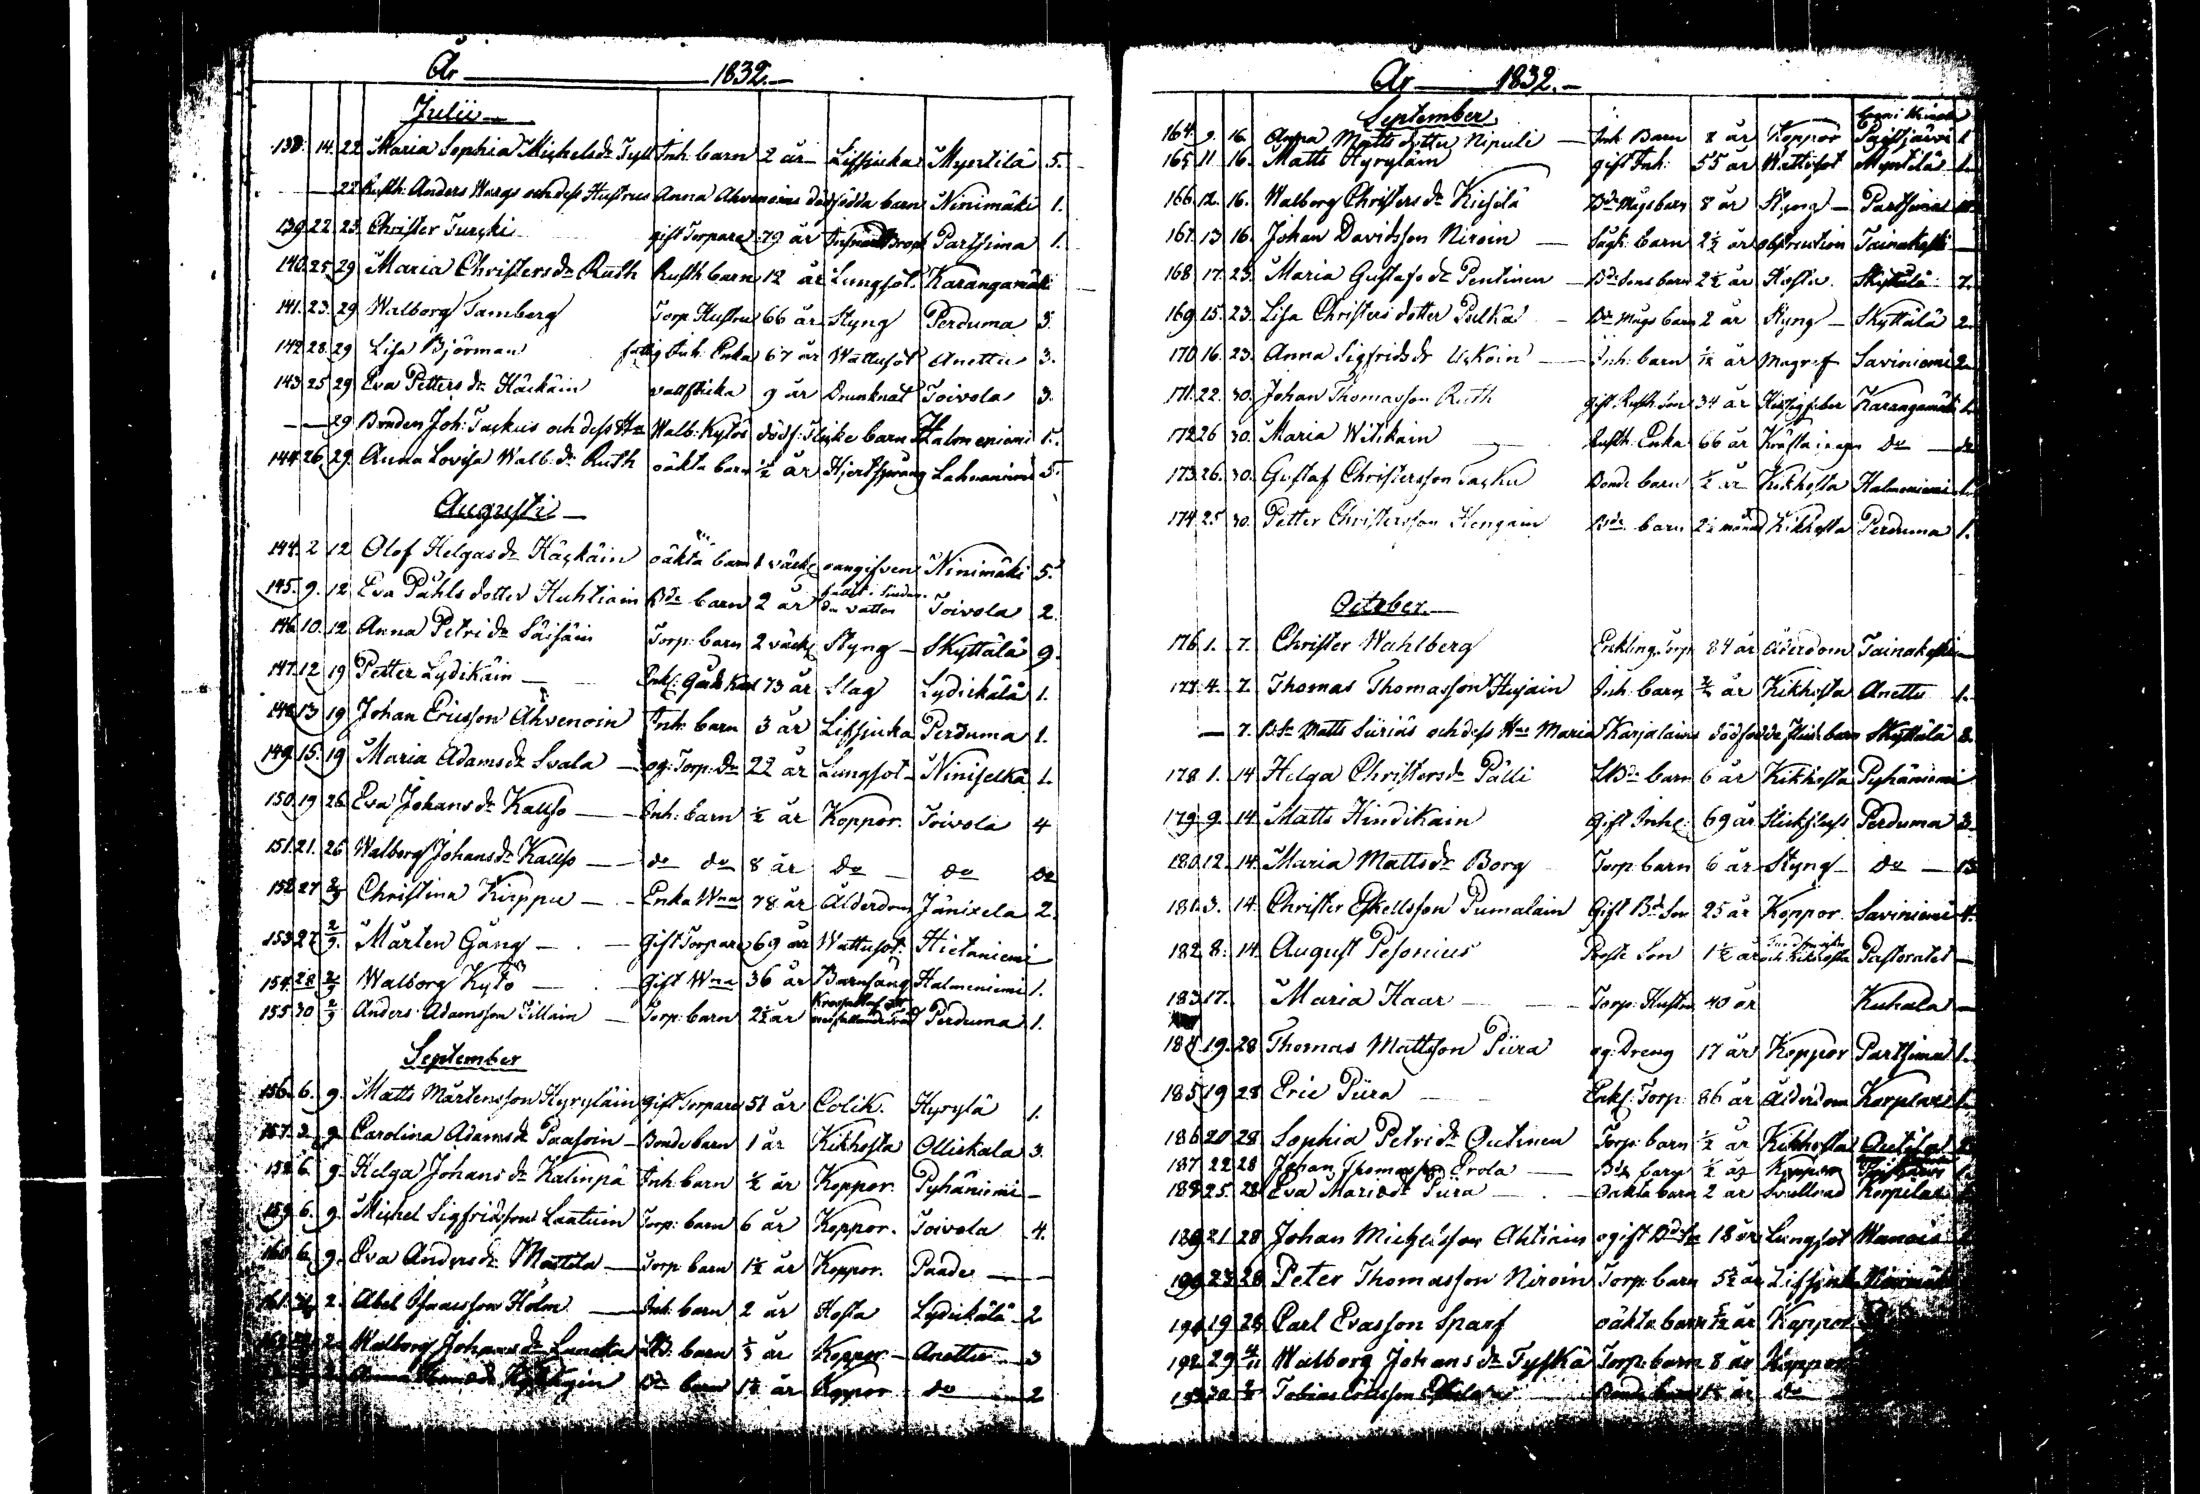 År 1832.
Julii
138. 14. 22 Maria Sophia Michelsdr Tyll Inh: barn 2 år Lissjuka Myntilä 5.
22 Rusth: Anders Wargs och dess Hustrus Anna Ahvenoins dödfödda barn Ninimäki 1.
139. 22 23 Christer Turcki gift Torpare 79 år Partsima 1.
140. 25 29 Maria Christersdr Ruth Rusth barn 12 år Lungsot Karangamäki
141. 23. 29 Walborg Tamberg Torp Hustru 66 år Styng Perduma 3.
142 28. 29 Lisa Björman fattig Inh: Enka 67 år Wattusot Anettu 3.
143 25 29 Eva Petters dr Häckäin vallflicka 9 år Drunknat Toivola 3.
29 Bonden Joh: Taskus och dess Hu Walb: Kytös dödf: Flicke barn Halmeniemi 1.
144 26 29. Anna Lovisa Walb: dr Ruth oäkta barn ½ år Hjertsprång Lahnaniemi 5.
Augusti
144. 2 12 Olof Helgas dr Häckäin oäkta barn 1 väck oangifven Ninimäki 5.
145. 9. 12 Eva Påhls dotter Huhtiain Bde barn 2 år vatten Toivola 2.
146. 10. 12 Anna Petri dr Säisäin Torp: barn 2 väck Styng Skyttälä 9.
147. 12 19 Petter Lydikäin Enkl: Gårdskarl 73 år Slag Lydickälä 1.
148. 13 19 Johan Ericsson Ahvenoin Inh: barn 3 år Lissjuka Perduma 1.
149. 15. 19 Maria Adamsdr Svala og: Torp: Dr 22 år Lungsot Niniselkä 1.
150. 19 26 Eva Johansdr Kallio Inh: barn ½ år Koppor. Toivola 4
151. 21. 26 Walborg Johansdr Kallio do do 8 år do do do
152 27 2/9 Christina Kirppu Enka Wna 78 år Ålderdom Jänixela 2.
153 27 2/9. Mårten Gång Gift Torpare 69 år Wattusot Hietaniemi
154. 28 2/9 Walborg Kytö Gift Wna 36 år Barnsäng Halmeniemi 1.
155 30 2/9 Anders Adamsson Tillain Torp: barn 2½ år Perduma 1.
September
156. 6. 9. Matts Mårtensson Hyryläin gift Torpare 51 år Colik. Hyrylä 1.
157. 2. 9. Carolina Adamsdr Paasoin Bonde barn 1 år Kikhosta Olliskala 3.
158 6. 9. Helga Johans dr Kalinpä Inh: barn ½ år Koppor. Pyhäniemi
159. 6. 9. Michel Sigfridsson Laatuin Torp: barn 6 år Koppor. Toivola 4.
160. 6. 9. Eva Anders dr Mattila Torp barn 1½ år Koppor. Paade
161. 2. Abel Isaacsson Holm Inh: barn 2 år Hosta Lydickälä 2
162 2. Walborg Johans dr barn ⅓ år Koppor Anettu 3
Anna Bde barn 1½ år Koppor do 2
Ar 1832.
September
164. 9. 16. Anna Matts dotter Nipuli Inh Barn 8 år Koppor 1
165 11 16. Matts Hyryläin gift Inh: 55 år Wattusot Myntilä 1.
166 12. 16. Walborg Christers dr Kisilä Bde Mågs barn 8 år Styng Partsima
167. 13 16. Johan Davidsson Niroin barn 2½ år obstruction Tainakoski
168 17. 23. Maria Gustafs dr Pentinen Bde Sons barn 2½ år Hosta Skyttälä 7.
169. 15. 23. Lisa Christers dotter Pulka Bde Mågs barn 2 år Styng Skyttälä 2.
170. 16. 23. Anna Sigfrids dr Uskoin Inh: barn år Magref Saviniemi 2.
171. 22. 30. Johan Thomasson Ruth gift Rusth Son 34 år Hetsig feber Karangamäki 1.
172 26 30. Maria Witikain Rusth: Enka 66 år do do
173. 26. 30. Gustaf Christersson Tasku Bonde barn ½ år Kikhosta Halmeniemi 1.
174. 25 30. Petter Christersson Hengain Bde barn 2½ månad Kikhosta Perduma 1.
October.
176 1. 7. Christer Wahlberg Enkling Torp 84 år Ålderdom Tainakoski
177. 4. 7. Thomas Thomasson Hujain Inh: barn år Kikhosta Anettu 1.
7. Bde Matts Siriäs och dess Hus Maria Karjalains dödfödde Flick barn Skyttälä 8.
178 1. 14 Helga Christersdr Pälli Bde barn 6 år Kikhosta Pyhäniemi
179. 9. 14 Matts Hindikain Gift Inh: 69 år Perduma 3
180. 12. 14. Maria Mattsdr Borg Torp barn 6 år Styng do 13
181. 3. 14. Christer Eskellsson Pumalain Gift Bde Son 25 år Koppor. Saviniemi 4.
182 8. 14 August Pesonius Prost Son 1½ år och Kikhosta Pastoratet
183 17. Maria Haar Torp: Hustru 40 år Kuhala
184 19. 28 Thomas Mattsson Piira og: Dreng 17 år Koppor Partsima 1.
185 19 28 Eric Piira Enkl: Torp: 86 år Ålderdom Korpilax 1.
186 20 28 Sophia Petri dr Outinen Torp: barn ½ år Kikhosta Outila
187 22 28 Johan Thomasson Erola Bde barn ½ år Koppor 1.
188 25. 28 Eva Mariædr Piira Oäkta barn 2 år Svullnad Korpilax
189 21 28 Johan Michelsson Ahtiain ogift Bde Son 18 år Lungsot
190 23 28 Peter Thomasson Niroin Torp: barn 5½ år Lissjuka Ninimäki
191 19 28 Carl Evasson Sparf oäkta barn år Koppor
192 29 4/11 Walborg Johans dr Tyskä Torp: barn 8 år Koppor
193 30. Tobias Bonde barn 1½ år do